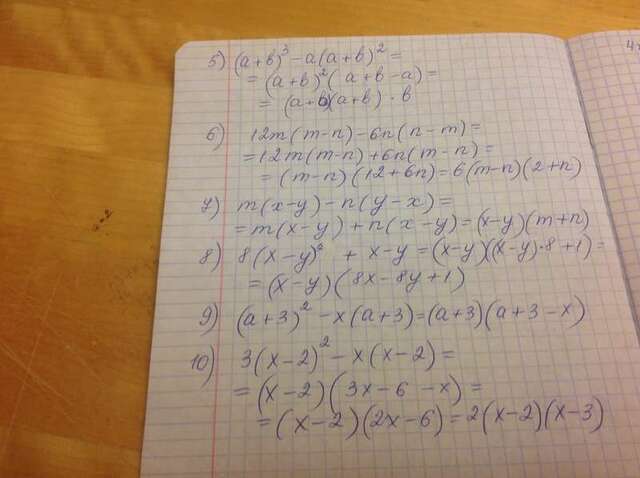 5) (a+b)³ - a(a+b)² =
= (a+b)² (a+b-a) =
= (a+b)(a+b) · b
6) 12m(m-n) - 6n(n-m) =
= 12m(m-n) + 6n(m-n) =
= (m-n)(12+6n) = 6(m-n)(2+n)
7) m(x-y) - n(y-x) =
= m(x-y) + n(x-y) = (x-y)(m+n)
8) 8(x-y)² + x-y = (x-y)((x-y)·8+1) =
= (x-y)(8x-8y+1)
9) (a+3)² - x(a+3) = (a+3)(a+3-x)
10) 3(x-2)² - x(x-2) =
= (x-2)(3x-6-x) =
= (x-2)(2x-6) = 2(x-2)(x-3)